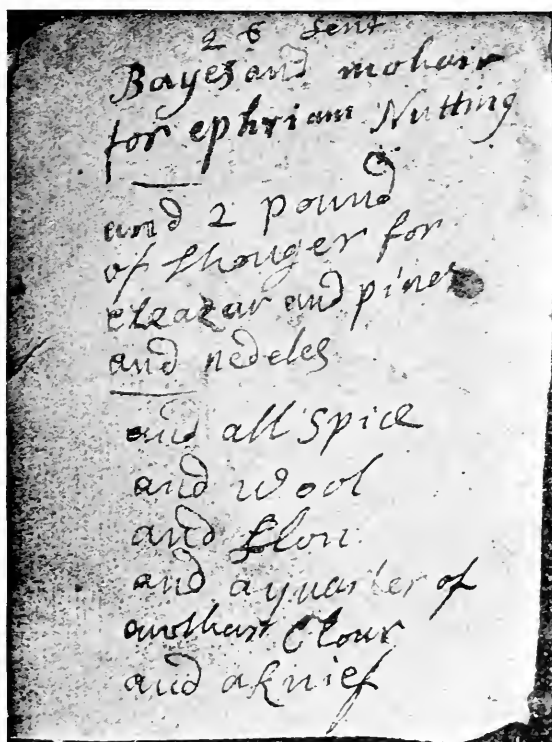 26 sent
Bayes and mohair
for ephriam Nutting
and 2 pound
of shouger for
eleazar and pines
and nedeles
and all spice
and wool
and
and a quarter of
anothar Clour
and a knief